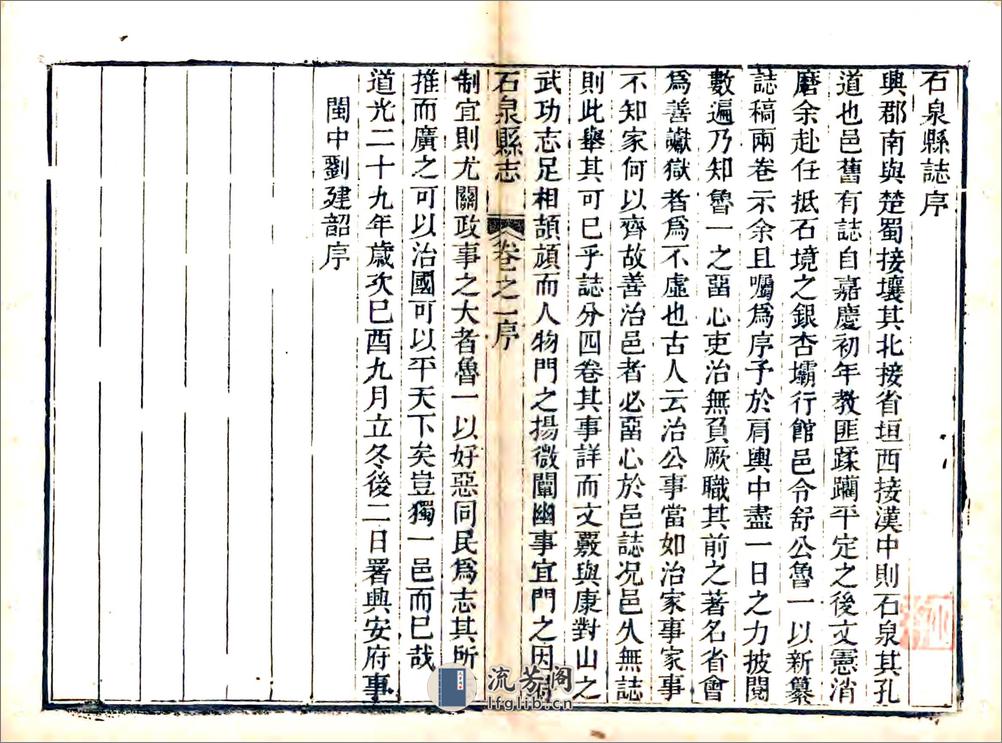 石泉縣誌序
興郡南與楚蜀接壤其北接省垣西接漢中則石泉其孔
道也邑舊有誌自嘉慶初年教匪蹂躪平定之後文憲消
磨余赴任抵石境之銀杏壩行館邑令舒公魯一以新纂
誌稿兩卷示余且囑爲序予於肩輿中盡一日之力披閱
數遍乃知魯一之畱心吏治無負厥職其前之著名省會
爲善讞獄者爲不虛也古人云治公事當如治家事家事
不知家何以齊故善治邑者必畱心於邑誌况邑久無誌
則此舉其可已乎誌分四卷其事詳而文覈與康對山之
武功志足相頡頏而人物門之揚微闡幽事宜門之因時
石泉縣志 卷之一序
制宜則尤關政事之大者魯一以好惡同民爲志其所
推而廣之可以治國可以平天下矣豈獨一邑而已哉
道光二十九年歲次已酉九月立冬後二日署興安府事
閩中劉建韶序
流芳阁
lfglib.cn